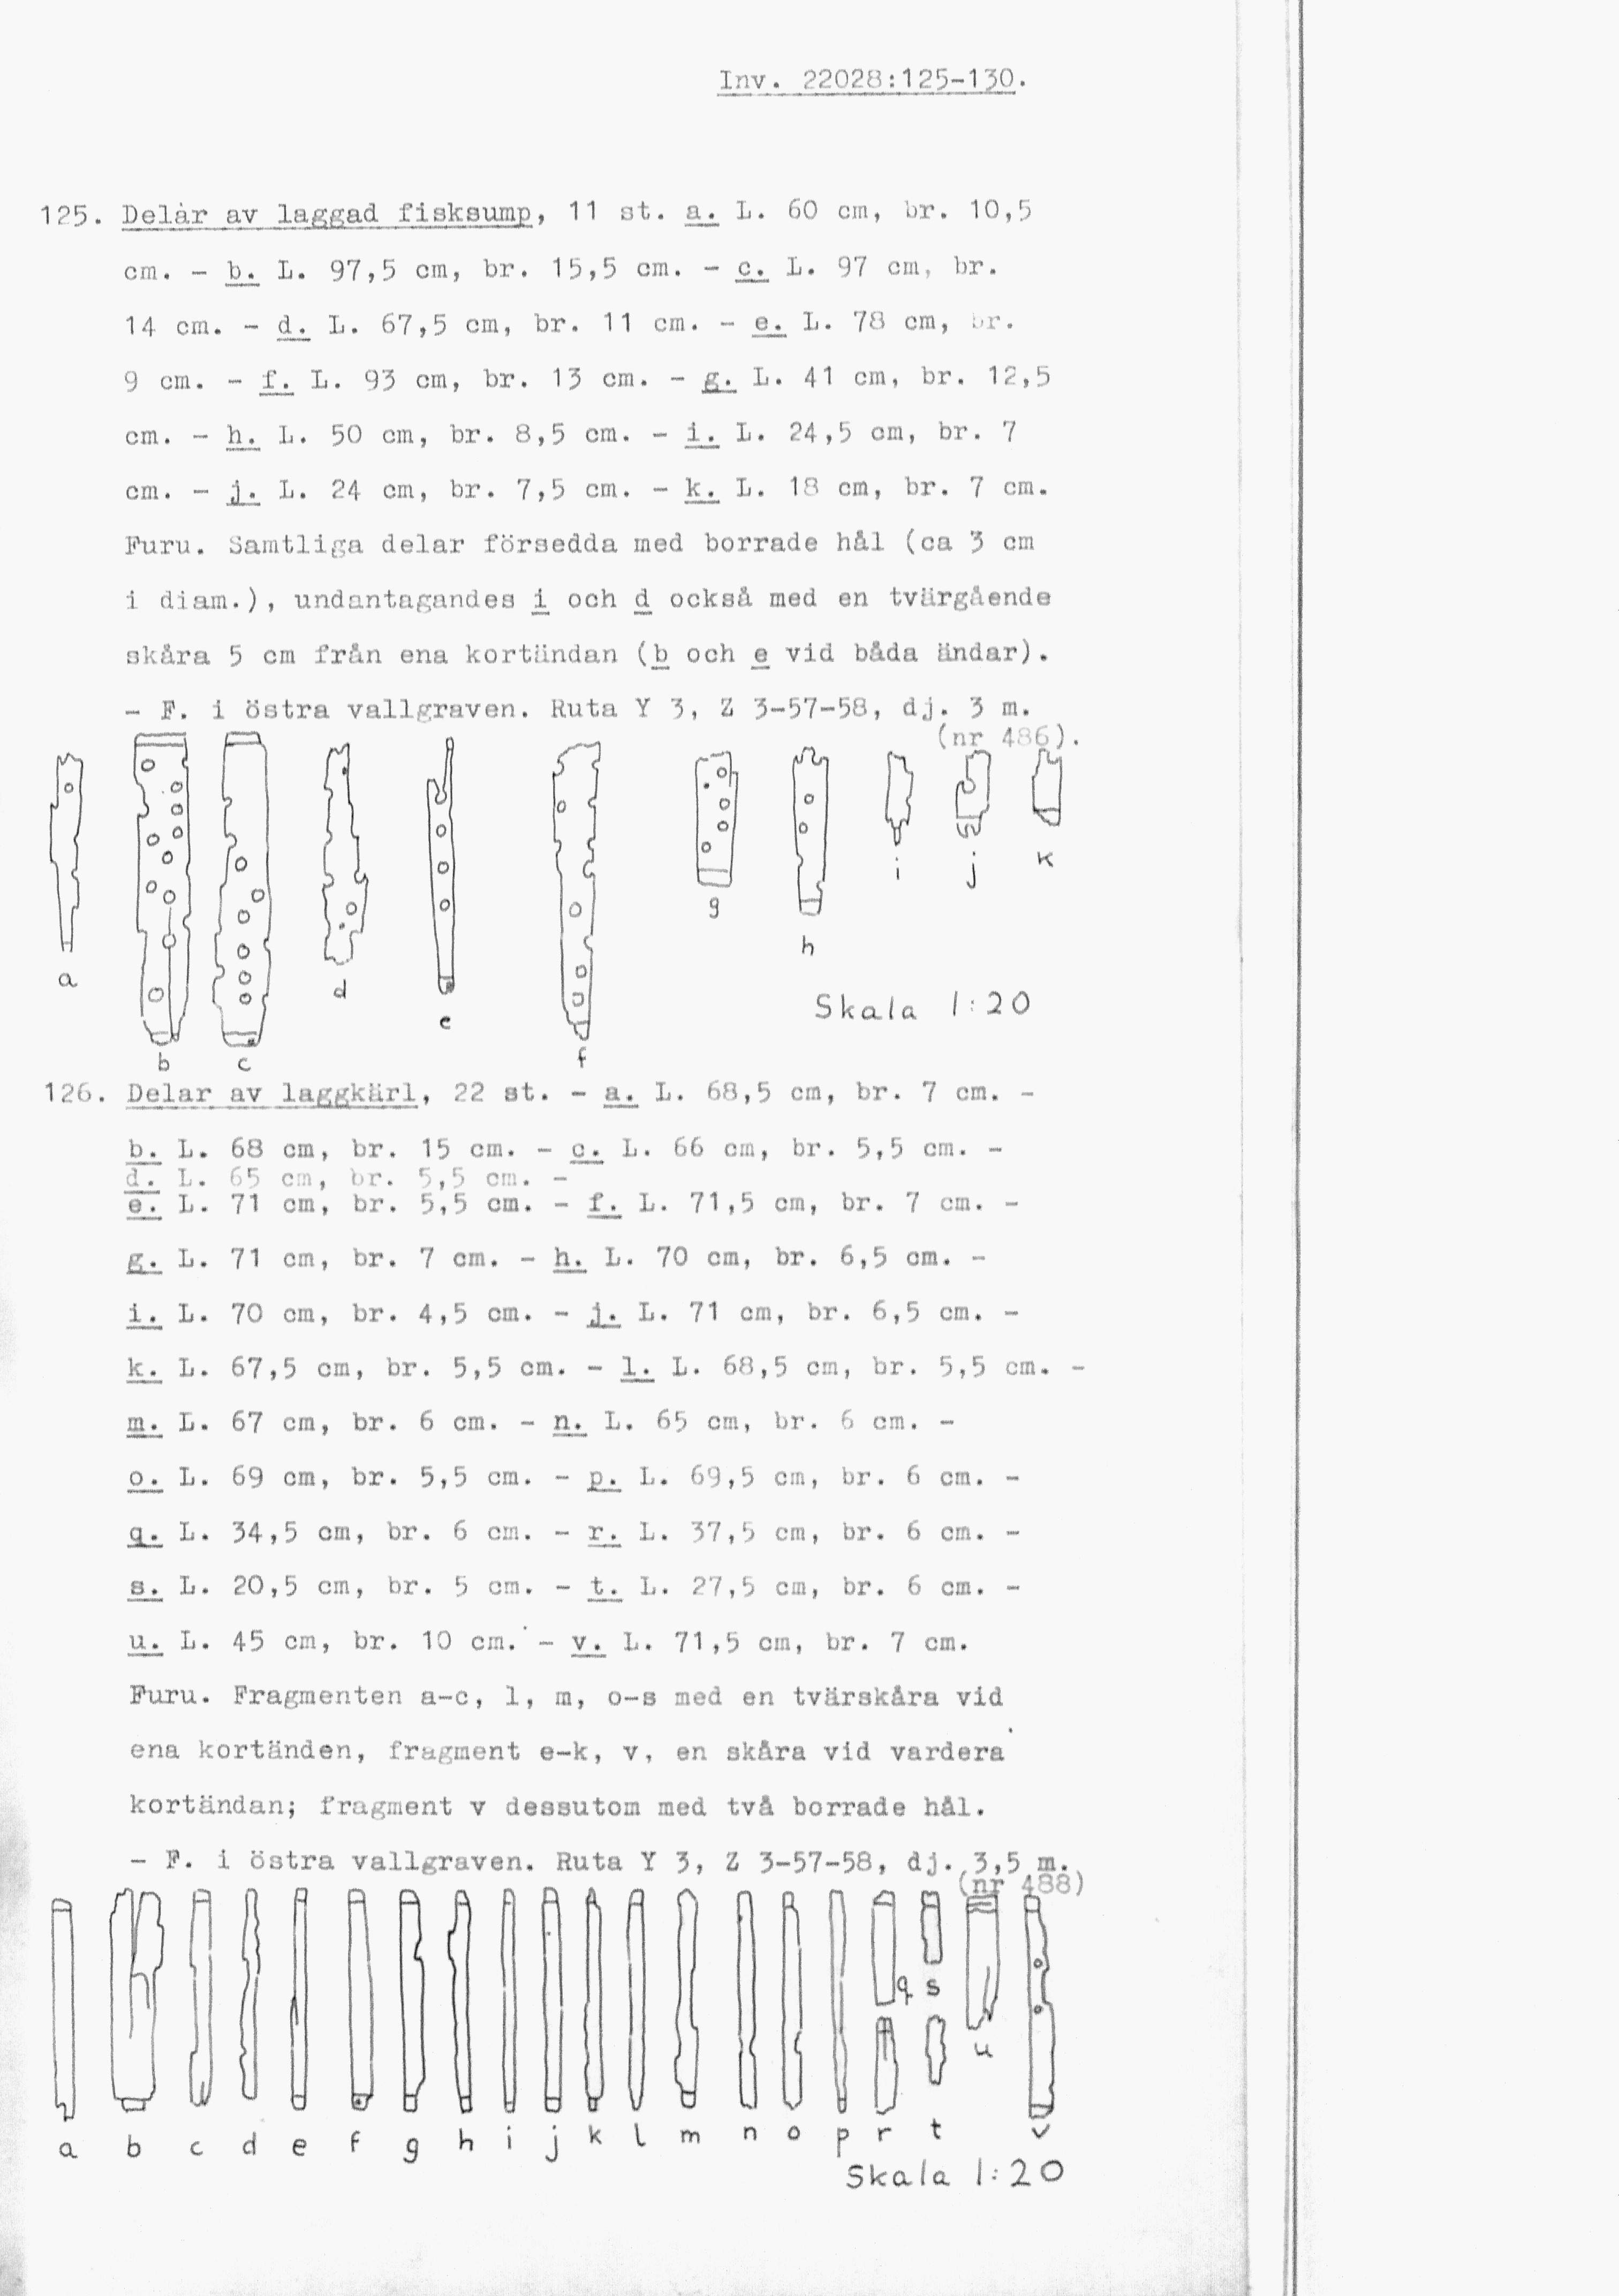 Inv. 22028:125-130.
125. Delar av laggad fisksump, 11 st. a. L. 60 cm, br. 10,5
cm. - b. L. 97,5 cm, br. 15,5 cm. - c. L. 97 cm, br.
14 cm. - d. L. 67,5 cm, br. 11 cm. - e. L. 78 cm, br.
9 cm. - f. L. 93 cm, br. 13 cm. - g. L. 41 cm, br. 12,5
cm. - h. L. 50 cm, br. 8,5 cm. - i. L. 24,5 cm, br. 7
cm. - j. L. 24 cm, br. 7,5 cm. - k. L. 18 cm, br. 7 cm.
Furu. Samtliga delar försedda med borrade hål (ca 3 cm
i diam.), undantagandes i och d också med en tvärgående
skåra 5 cm från ena kortändan (b och e vid båda ändar).
- F. i östra vallgraven. Ruta Y 3, Z 3-57-58, dj. 3 m.
(nr 486).
a b c d e f g h i j k
Skala 1:20
126. Delar av laggkärl, 22 st. - a. L. 68,5 cm, br. 7 cm. -
b. L. 68 cm, br. 15 cm. - c. L. 66 cm, br. 5,5 cm. -
d. L. 65 cm, br. 5,5 cm. -
e. L. 71 cm, br. 5,5 cm. - f. L. 71,5 cm, br. 7 cm. -
g. L. 71 cm, br. 7 cm. - h. L. 70 cm, br. 6,5 cm. -
i. L. 70 cm, br. 4,5 cm. - j. L. 71 cm, br. 6,5 cm. -
k. L. 67,5 cm, br. 5,5 cm. - l. L. 68,5 cm, br. 5,5 cm. -
m. L. 67 cm, br. 6 cm. - n. L. 65 cm, br. 6 cm. -
o. L. 69 cm, br. 5,5 cm. - p. L. 69,5 cm, br. 6 cm. -
q. L. 34,5 cm, br. 6 cm. - r. L. 37,5 cm, br. 6 cm. -
s. L. 20,5 cm, br. 5 cm. - t. L. 27,5 cm, br. 6 cm. -
u. L. 45 cm, br. 10 cm. - v. L. 71,5 cm, br. 7 cm.
Furu. Fragmenten a-c, l, m, o-s med en tvärskåra vid
ena kortänden, fragment e-k, v, en skåra vid vardera
kortändan; fragment v dessutom med två borrade hål.
- F. i östra vallgraven. Ruta Y 3, Z 3-57-58, dj. 3,5 m.
(nr 488)
q s
u
a b c d e f g h i j k l m n o p r t v
Skala 1:20